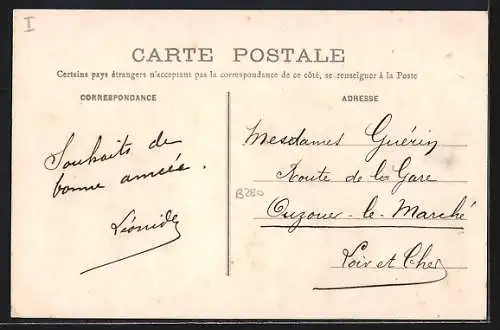 I
CARTE POSTALE
Certains pays étrangers n'acceptant pas la correspondance de ce côté, se renseigner à la Poste
CORRESPONDANCE
ADRESSE
Souhaits de
bonne année.
Léonide
Mesdames Guérin
Route de la Gare
Ouzouer-le-Marché
Loir et Cher
B280